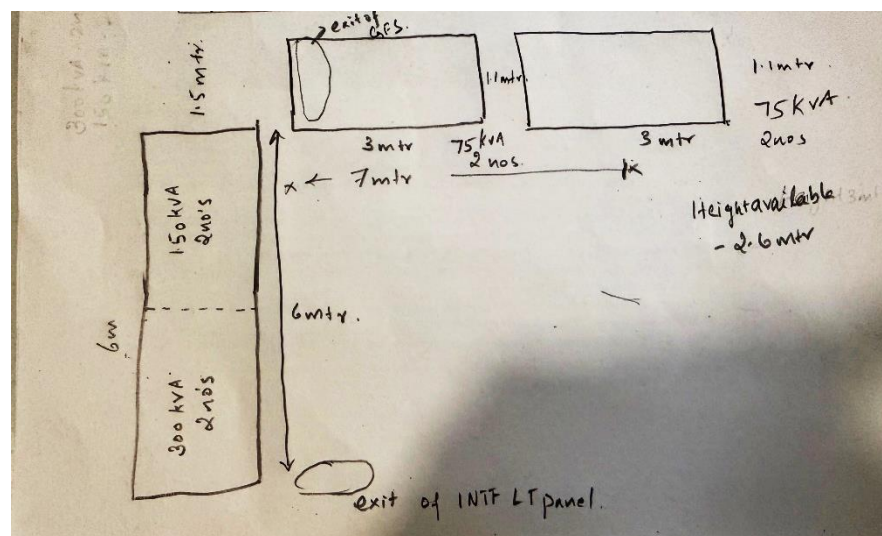 exit of
GFS.
1.5 mtr.
1.1 mtr.
1.1 mtr.
75 KVA
2 nos
3 mtr
75 KVA
2 nos.
3 mtr
7 mtr
Height available
- 2.6 mtr
150 KVA
2 no's
6 mtr.
6m
300 KVA
2 no's
exit of INTF LT panel.